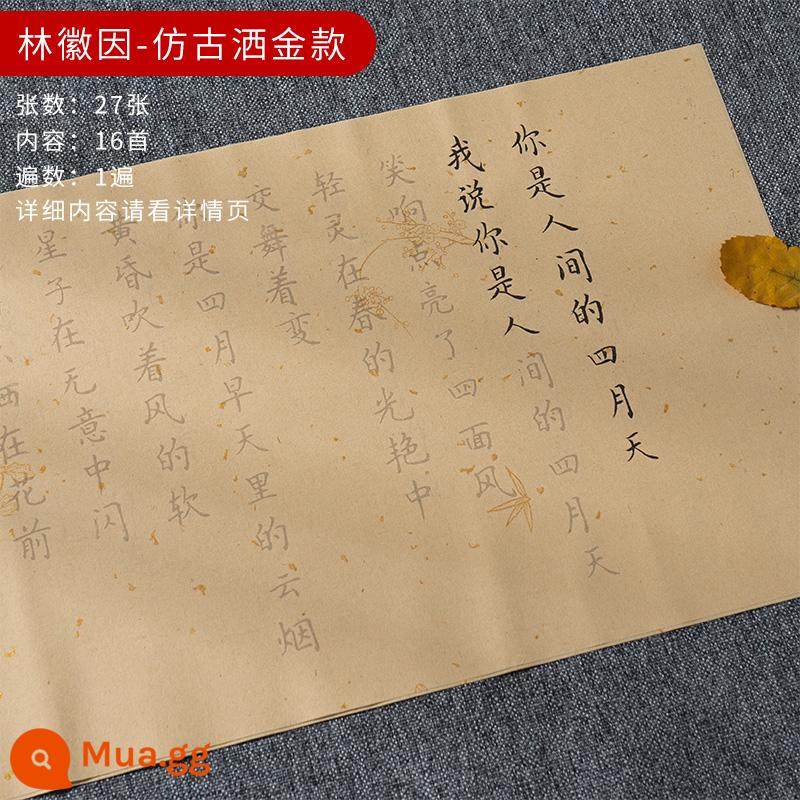 林徽因-仿古洒金款
张数：27张
内容：16首
遍数：1遍
详细内容请看详情页
你是人间的四月天
我说你是人间的四月天
笑响点亮了四面风
轻灵在春的光艳中
交舞着变
你是四月早天里的云烟
黄昏吹着风的软
星子在无意中闪
洒在花前
Mua.gg